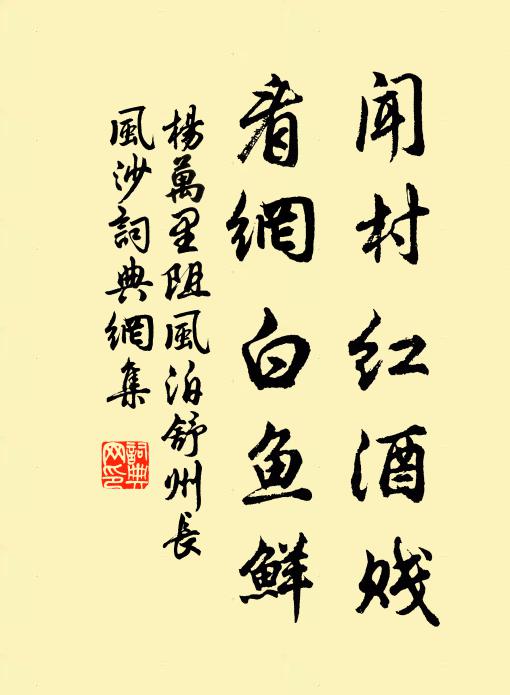 闻村红酒贱
看網白鱼鮮
楊萬里阻風泊舒州長
風沙詞典網集
詞典
网印